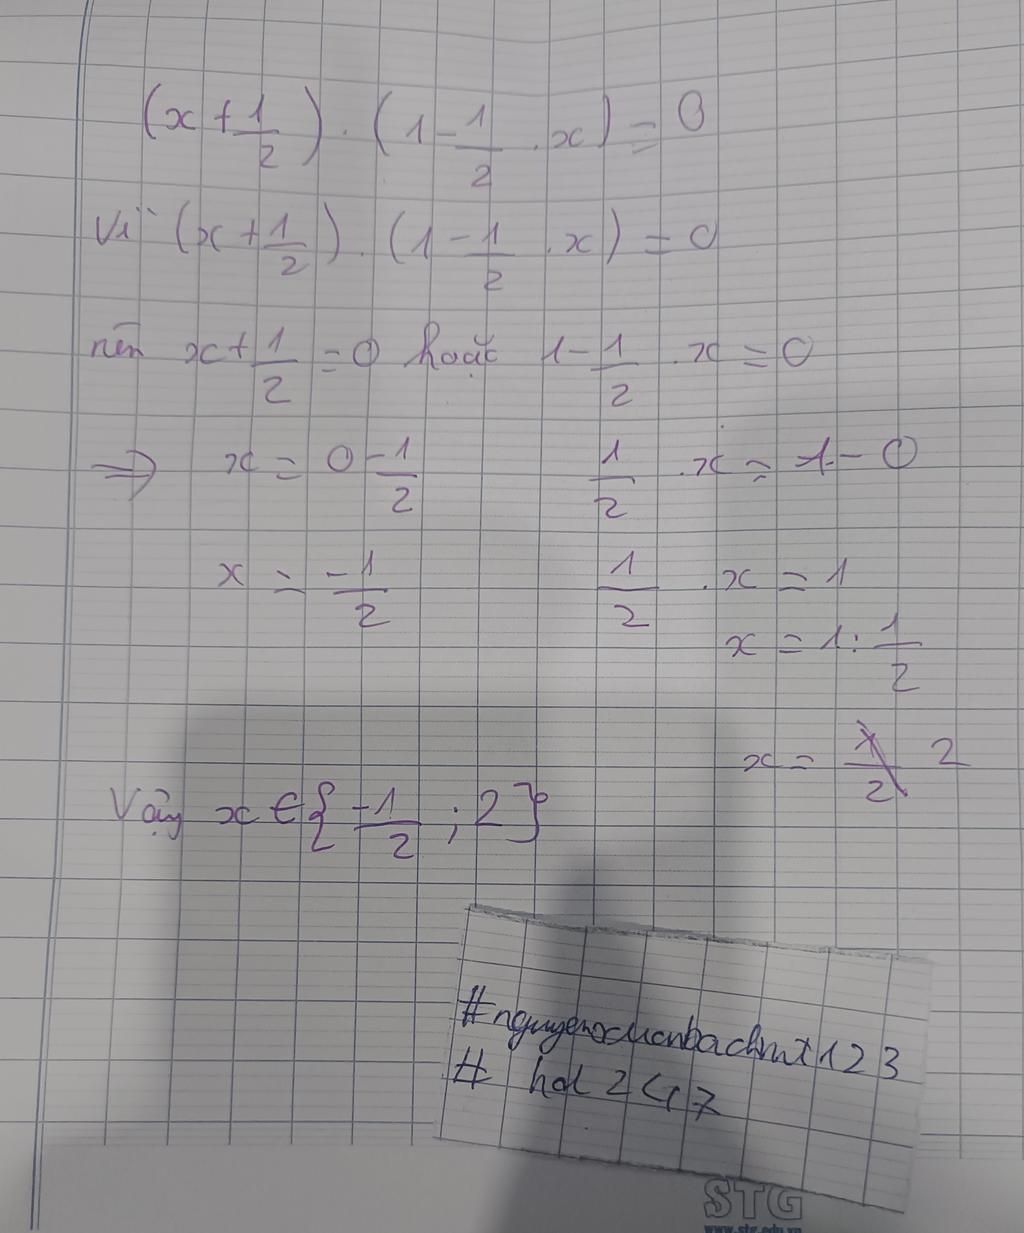 (x + 1/2) . (1 - 1/2 . x) = 0
Vì (x + 1/2) . (1 - 1/2 . x) = 0
nên x + 1/2 = 0 hoặc 1 - 1/2 . x = 0
⇒ x = 0 - 1/2 1/2 . x = 1 - 0
x = -1/2 1/2 . x = 1
x = 1 : 1/2
x = 2
Vậy x ∈ { -1/2 ; 2 }
#nguyenxuanbachmt123
# hdl 247
STG
www.stg.edu.vn